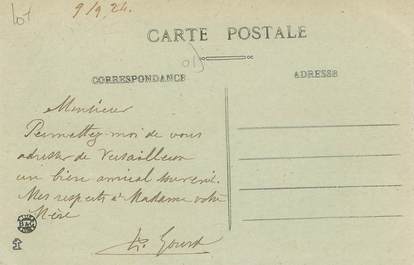 lot
9/9 24.
CARTE POSTALE
CORRESPONDANCE
ADRESSE
Monsieur
Permettez-moi de vous
adresser de Versailles
un bien amical souvenir.
Mes respects à Madame votre
Mère
B&G